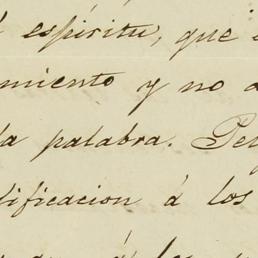 espíritu, que
miento y no
la palabra.
ificacion á los